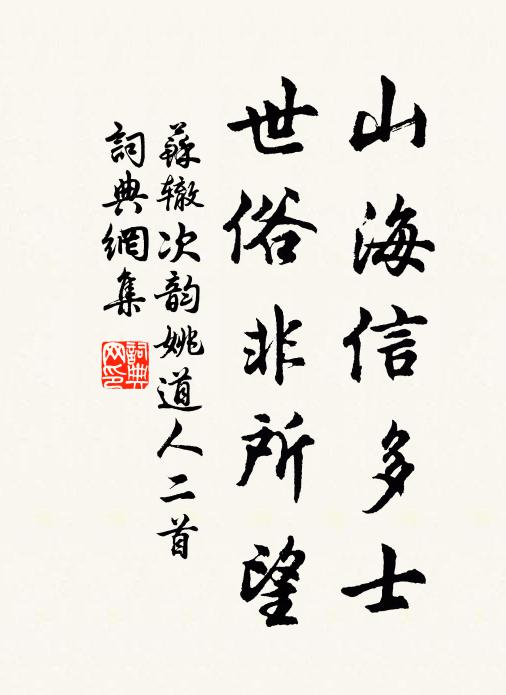 山海信多士
世俗非所望
蘇辙次韵姚道人二首
詞典網集
詞典网印